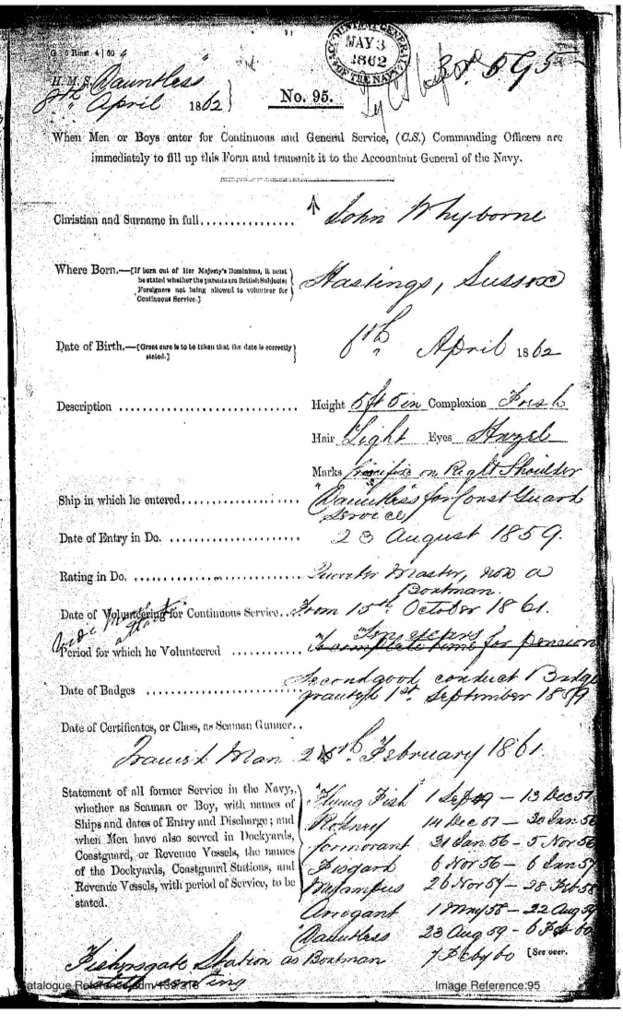 ACCOUNTANT GENERAL
MAY 3
1862
OF THE NAVY
595
H. M. S. "Dauntless"
April 1862
No. 95.
When Men or Boys enter for Continuous and General Service, (C.S.) Commanding Officers are
immediately to fill up this Form and transmit it to the Accountant General of the Navy.
Christian and Surname in full ................ John Whyborne
Where Born.—[If born out of Her Majesty's Dominions, it must
be stated whether the parents are British Subjects;
Foreigners not being allowed to volunteer for
Continuous Service.]
Hastings, Sussex
Date of Birth.—[Great care is to be taken that the date is correctly
stated.]
April 1862
Description .............................. Height 5ft 5in Complexion Fresh
Hair Light Eyes Hazel
Marks Crucifix on Right Shoulder
Ship in which he entered................... "Dauntless" for Coast Guard
Service
Date of Entry in Do. ..................... 23 August 1859.
Rating in Do. ........................... Quarter Master, now a
Boatman.
Date of Volunteering for Continuous Service.. From 15th October 1861.
Period for which he Volunteered ............ To complete time for pension
Date of Badges .......................... Second good conduct Badge
granted 1st September 1859
Date of Certificates, or Class, as Seaman Gunner..
Man February 1861
Statement of all former Service in the Navy,
whether as Seaman or Boy, with names of
Ships and dates of Entry and Discharge; and
when Men have also served in Dockyards,
Coastguard, or Revenue Vessels, the names
of the Dockyards, Coastguard Stations, and
Revenue Vessels, with period of Service, to be
stated.
"Flying Fish" 1 Sep - 13 Dec 57
Rodney 14 Dec - 30 Jan 56
Cormorant 31 Jan 56 - 5 Nov 56
Fisgard 6 Nov 56 - 6 Jan 57
26 Nov 57 - 28 Feb 58
Arrogant 1 May 58 - 22 Aug 59
"Dauntless 23 Aug 59 - 6 Feb 60
Fishersgate Station as Boatman 7 Feby 60 [See over.
Catalogue Reference:adm/139/316 Image Reference:95